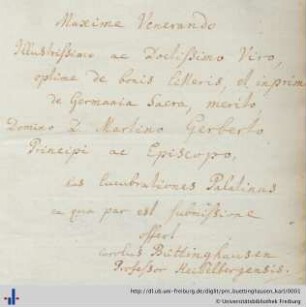 Maxime Venerando
Illustrissimo ac Doctissimo Viro,
optime de bonis litteris, et inprimis
de Germania Sacra, merito,
Domino à Martino Gerberto
Principi ac Episcopo,
has Lucubrationes Palatinas
ea qua par est submissione
offert
Carolus Büttinghausen
Professor Heidelbergensis.
http://dl.ub.uni-freiburg.de/diglit/pm_buettinghausen_karl/0001
© Universitätsbibliothek Freiburg